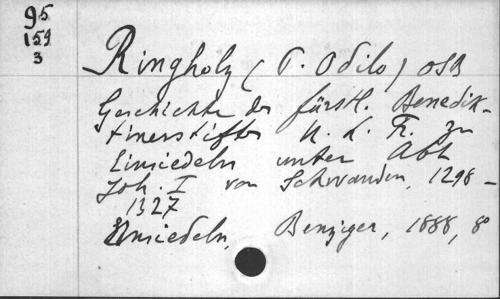 95
159
3
Ringholz (P. Odilo) OSB
Geschichte des fürstl. Benedik-
tinerstiftes U. L. F. zu
Einsiedeln unter Abt
Joh. I von Schwanden, 1298-
1327
Einsiedeln, Benziger, 1888, 8°